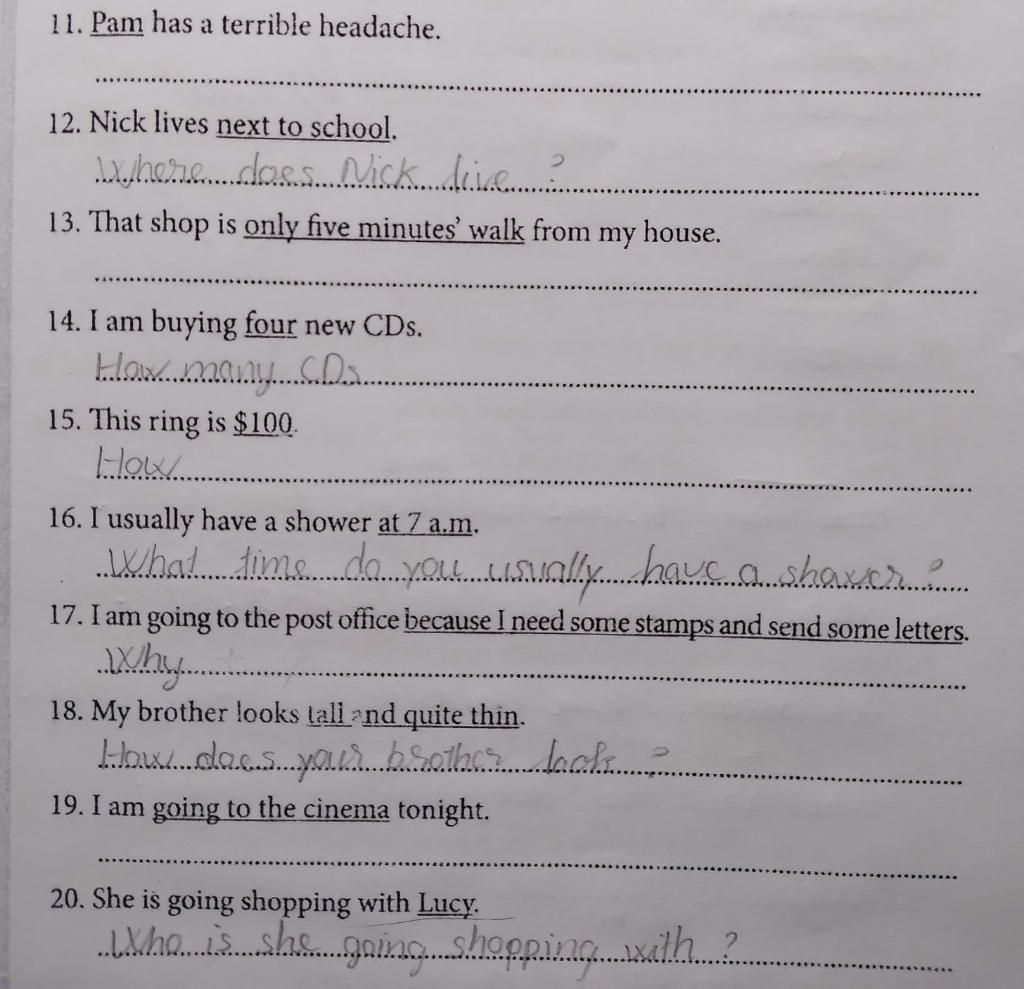 11. Pam has a terrible headache.
12. Nick lives next to school.
Where does Nick live ?
13. That shop is only five minutes' walk from my house.
14. I am buying four new CDs.
How many CDs
15. This ring is $100.
How
16. I usually have a shower at 7 a.m.
What time do you usually have a shower ?
17. I am going to the post office because I need some stamps and send some letters.
Why
18. My brother looks tall and quite thin.
How does your brother look ?
19. I am going to the cinema tonight.
20. She is going shopping with Lucy.
Who is she going shopping with ?